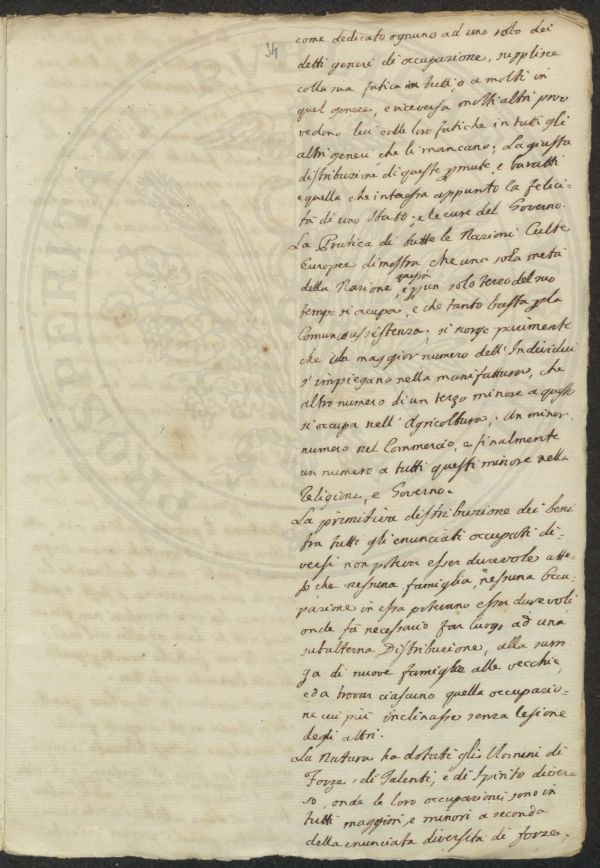 34
come dedicato ognuno ad uno solo dei
detti generi di occupazione, supplisce
colla sua fatica in tutti, o a molti in
quel genere, e viceversa molti altri prov
vedono lui colle loro fatiche in tutti gli
altri generi che li mancano; La giusta
distribuzione di queste pmute, e baratti
e quella che intaßa appunto la felici-
tà di uno Stato, e le cure del Governo.
La Pratica di tutte le Nazioni Culte
Europee dimostra che una sola metà
della Nazione, quasi e p un solo terzo del suo
tempo si occupa, e che tanto basta p la
Comune sussistenza; si scorge parimente
che un maggior numero dell'Individui
s'impiegano nella manifattura, che
altro numero di un terzo minore a questo
si occupa nell'Agricoltura; Un minor
numero nel Commercio, e finalmente
un numero a tutti questi minore nella
Religione, e Governo.
La primitiva distribuzione dei beni
tra tutti gli enunciati occupati di-
versi non poteva esser durevole atte-
so che nessuna famiglia, nessuna Occu-
pazione in essa potevano esser durevoli
onde fà necessario far luogo ad una
subalterna Distribuzione, alla surro
ga di nuove famiglie alle vecchie,
ed a trovar ciascuno quella occupazio-
ne cui più inclinasse senza lesione
degli altri.
La Natura ha dotati gli Uomini di
Forze, di Talenti, e di Spirito diver-
so, onde le loro occupazioni sono in
tutti maggiori, e minori a seconda
della enunciata diversità di forze.